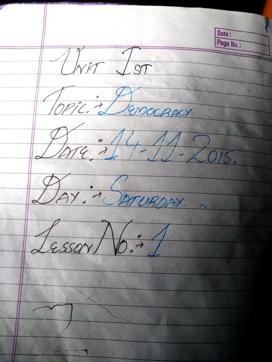 Date :
Page No. :
Unit Ist
Topic :→ Democracy
Date :→ 14-11-2015.
Day :→ Saturday.
Lesson No. :→ 1